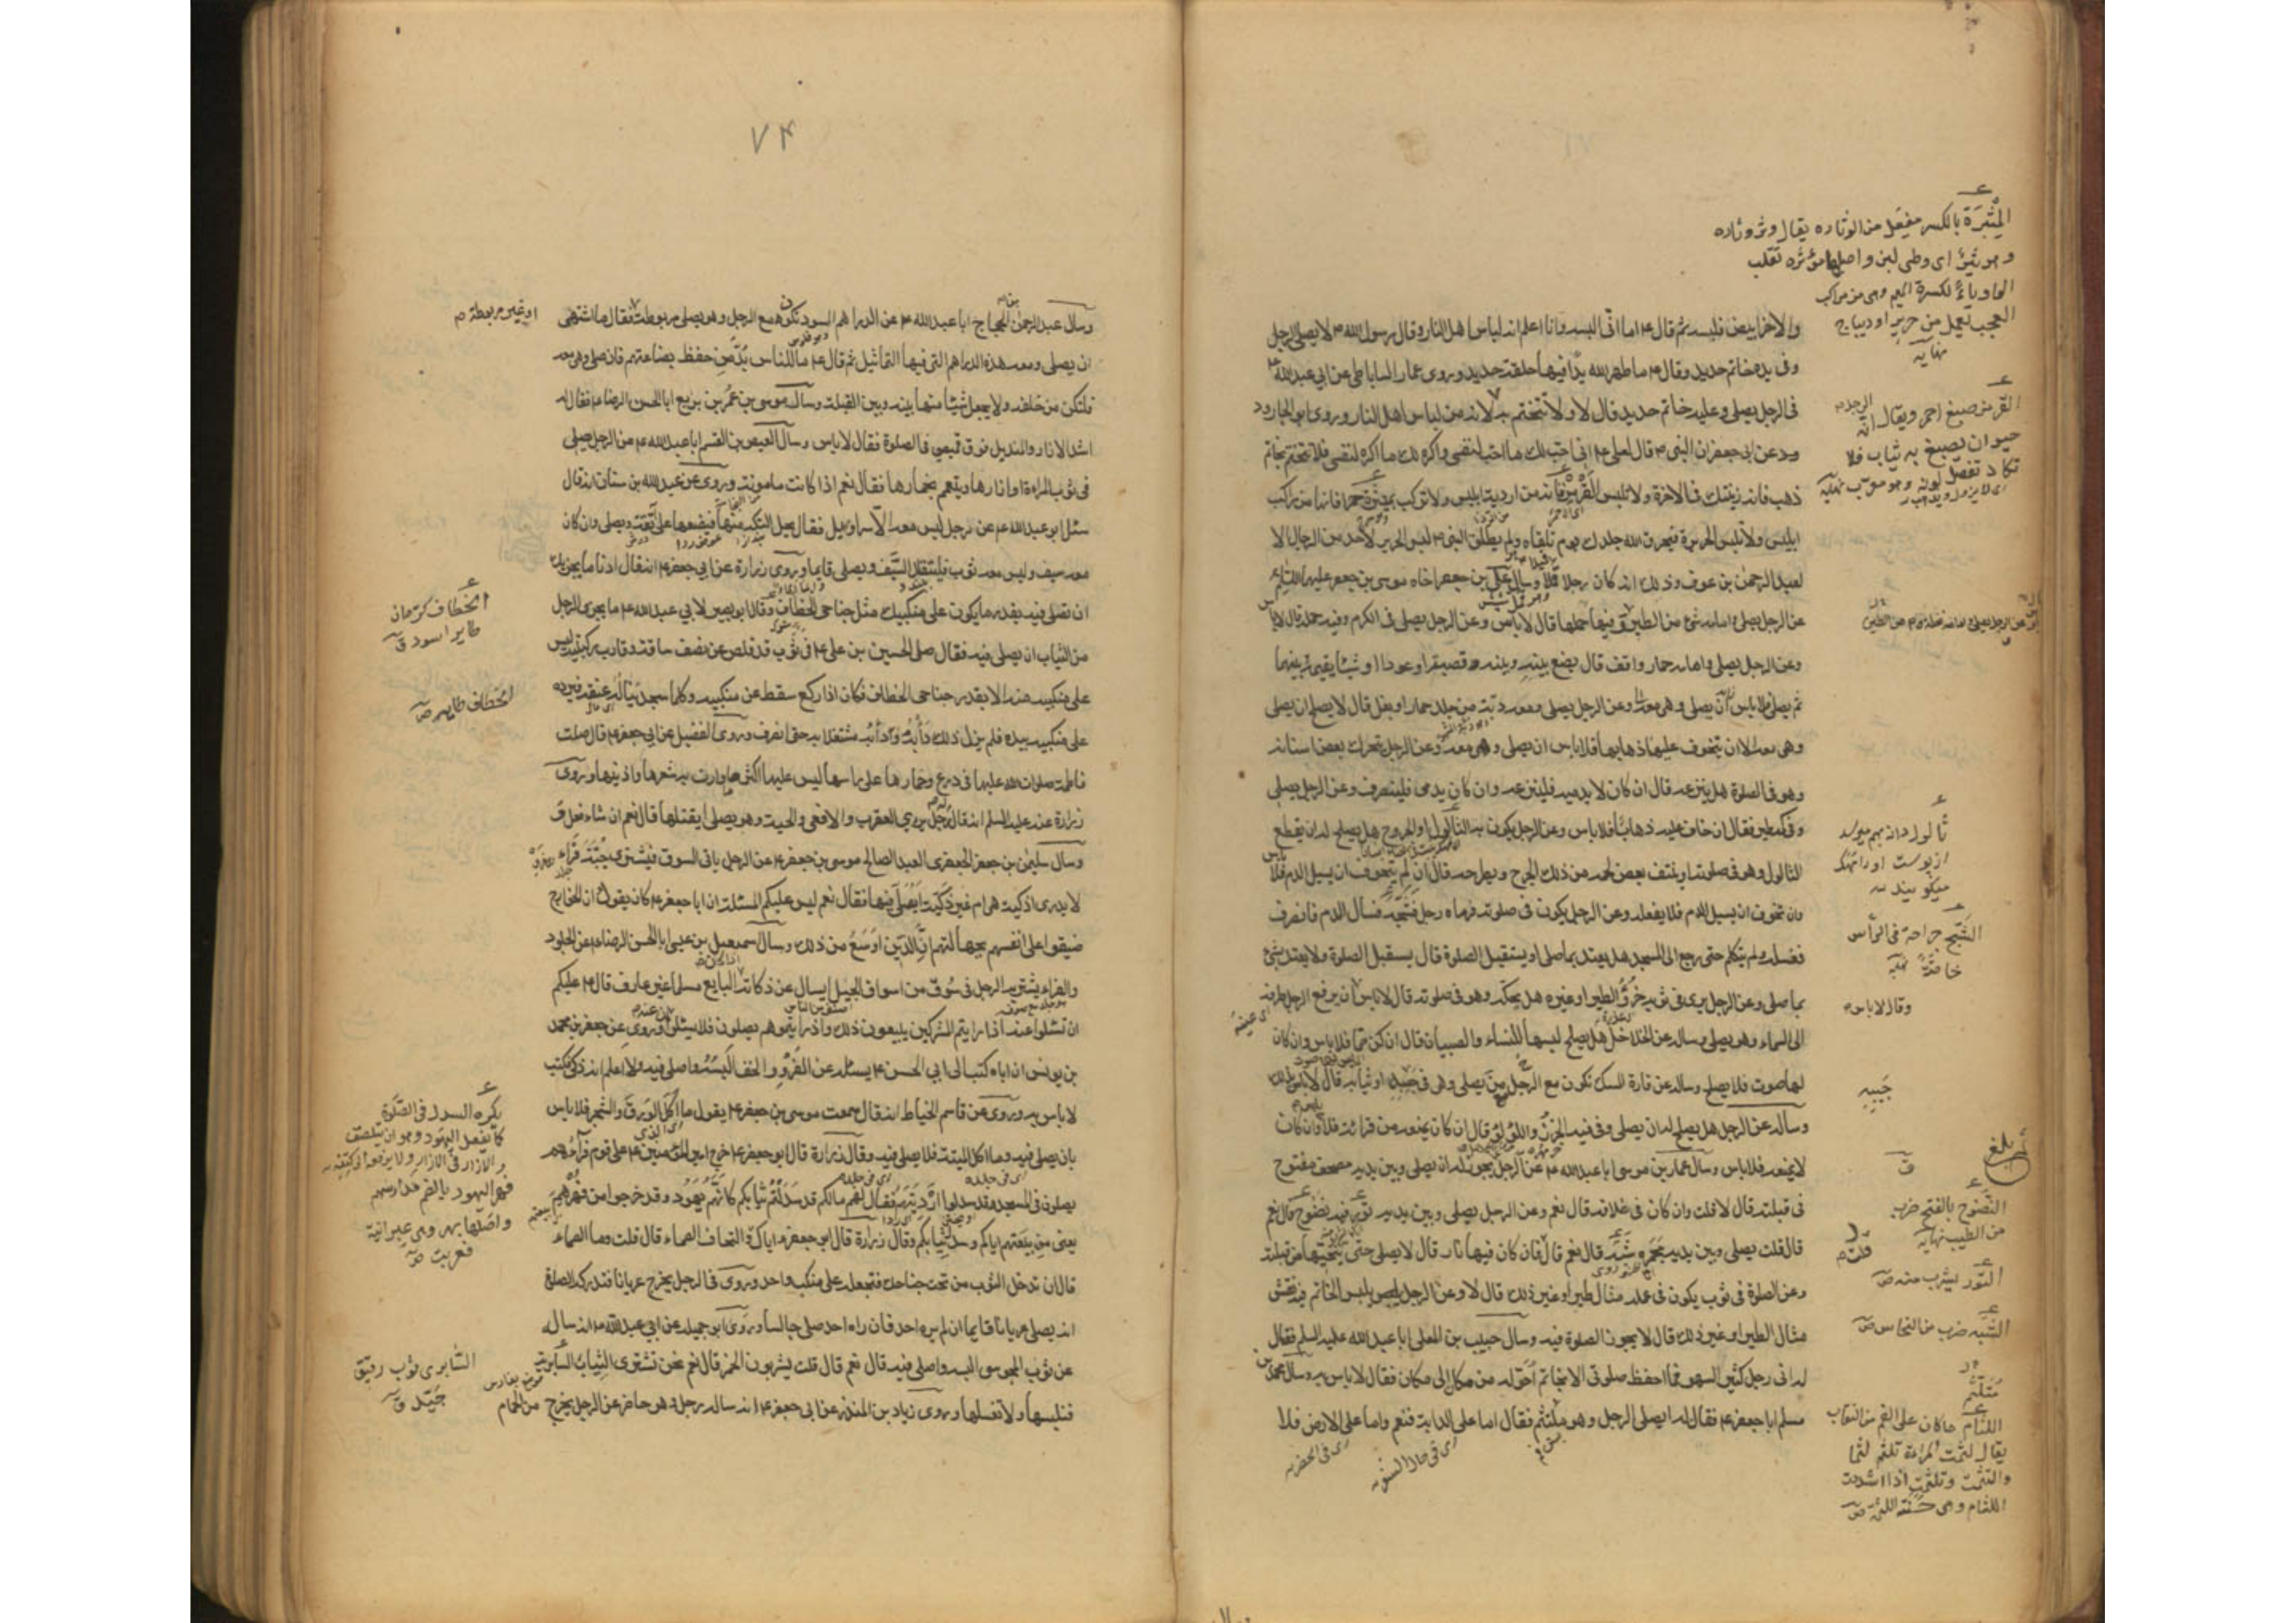 والاخر ابيض فلبسه ثم قال ع اما انى البسه وانا اعلم انه لباس اهل النار وقال رسول الله ص لا يصلى الرجل
وفى يده خاتم حديد وقال ع ما طهر الله يدا فيها حلقة حديد وروى عمار الساباطى عن ابى عبد الله ع
فى الرجل يصلى وعليه خاتم حديد قال لا ولا يتختم به لانه من لباس اهل النار وروى ابو الجارود
عن ابى جعفر ان النبى ص قال لعلى ع انى احب لك ما احب لنفسى واكره لك ما اكره لنفسى فلا تتختم بخاتم
ذهب فانه زينتك فى الاخرة ولا تلبس القرمز فانه من اردية ابليس ولا تركب بميثرة حمرا فانها من مراكب
ابليس ولا تلبس الحرير فيحرق الله جلدك يوم تلقاه ولم يطلق النبى ص لبس الحرير لاحد من الرجال الا
لعبد الرحمن بن عوف وذلك انه كان رجلا قملا وسال على بن جعفر اخاه موسى بن جعفر عليهما السلم
عن الرجل يصلى وامامه شئ من الطير قال لا باس وعن الرجل يصلى فى الكرم وفيه حمله قال لا باس
وعن الرجل يصلى وامامه حمار واقف قال يضع بينه وبينه قصبة او عودا او شيئا يقيمه بينهما
ثم يصلى فلا باس وعن الرجل يصلى ومعه دبة من جلد حمار او بغل قال لا يصلح ان يصلى
وهى معه الا ان يتخوف عليها ذهابها فلا باس ان يصلى وهى معه وعن الرجل تحرك بعض اسنانه
وهو فى الصلوة هل ينزعه قال ان كان لا يدميه فلينزعه وان كان يدمى فلينصرف وعن الرجل يصلى
وفى كمه طير فقال ان خاف عليه ذهابا فلا باس وعن الرجل يكون به الثالول او الجروح هل يصلح له ان يقطع
الثالول وهو فى صلوته او ينتف بعض لحمه من ذلك الجرح ويطرحه قال ان لم يتخوف ان يسيل الدم فلا باس
وان تخوف ان يسيل الدم فلا يفعله وعن الرجل يكون فى صلوته فرماه رجل فشجه فسال الدم فانصرف
فغسله ولم يتكلم حتى رجع الى المسجد هل يعتد بما صلى او يستقبل الصلوة قال يستقبل الصلوة ولا يعتد بشئ
بما صلى وعن الرجل يرى فى ثوبه خرؤ الطير او غيره هل يحكه وهو فى صلوته قال لا باس ان يرفع الرجل طرفه
الى السماء وهو يصلى وساله عن الخلاخل هل يصلح لبسها للنساء والصبيان قال ان كن صما فلا باس وان كان
لها صوت فلا يصلح وساله عن فارة المسك تكون مع الرجل يصلى وهى فى جيبه او ثيابه قال لا باس بذلك
وساله عن الرجل هل يصلح له ان يصلى وفى فيه الخرز واللؤلؤ قال ان كان يمنعه من قرائته فلا وان كان
لا يمنعه فلا باس وسال عمار بن موسى ابا عبد الله ع عن الرجل يجوز له ان يصلى وبين يديه مصحف مفتوح
فى قبلته قال لا قلت وان كان فى غلافه قال نعم وعن الرجل يصلى وبين يديه تور فيه نضوح قال نعم
قال قلت يصلى وبين يديه مجمرة شبه قال نعم قال فان كان فيها نار قال لا يصلى حتى ينحيها من قبلته
وعن الصلوة فى ثوب يكون فى علمه مثال طير او غير ذلك قال لا وعن الرجل يلبس الخاتم فيه نقش
مثال الطير او غير ذلك قال لا يجوز الصلوة فيه وسال حبيب بن المعلى ابا عبد الله عليه السلم فقال
له انى رجل كثير السهو فما احفظ صلوتى الا بخاتمى احوله من مكان الى مكان فقال لا باس به وسال محمد بن
مسلم ابا جعفر ع فقال له ايصلى الرجل وهو متلثم فقال اما على الدابة فنعم واما على الارض فلا
الميثرة بالكسر مفعل من الوثارة يقال وثر وثارة
وهو وثير اى وطى لين واصلها موثرة تقلب
الواو ياءً لكسرة الميم وهى من مراكب
العجم تعمل من حرير او ديباج
نهاية
القرمز صبغ احمر ويقال انه
حيوان تصبغ به ثياب فلا
تكاد تنصل لونه وهو معرب نهاية
ثالول دانه
از پوست
ميگويند
الشج جراحة فى الرأس
خاصة نهاية
وقال لا باس
جيبه
بلغ
النضوح بالفتح ضرب
من الطيب نهاية
قلت
التور يشرب منه ص
الشبه ضرب من النحاس ص
متلثم
اللثام ما كان على الفم من النقاب
يقال لثمت المراة تلثم لثما
والتثمت وتلثمت اذا شدت
اللثام وهى حسنة اللثمة ص
اى فى حال السفر
اى فى الحضر
٧٤
وسال عبد الرحمن بن الحجاج ابا عبد الله ع عن الدراهم السود تكون مع الرجل وهو يصلى مربوطة فقال ما اشتهى
ان يصلى ومعه هذه الدراهم التى فيها التماثيل ثم قال ع ما للناس بد من حفظ بضائعهم فان صلى وهى معه
فلتكن من خلفه ولا يجعل شيئا منها بينه وبين القبلة وسال موسى بن عمر بن بزيع ابا الحسن الرضا ع فقال له
اشد الازار والمنديل فوق قميصى فى الصلوة فقال لا باس وسال العيص بن القسم ابا عبد الله ع عن الرجل يصلى
فى ثوب المراة او ازارها ويتعمم بخمارها فقال نعم اذا كانت مامونة وروى عن عبد الله بن سنان انه قال
سئل ابو عبد الله ع عن رجل ليس معه الا سراويل فقال يحل التكة منها فيضعها على عاتقه ويصلى وان كان
معه سيف وليس معه ثوب فليتقلد السيف ويصلى قايما وروى زرارة عن ابى جعفر ع انه قال ادنا ما يجزيك
ان تصلى فيه بقدر ما يكون على منكبيك مثل جناحى الخطاف وقال ابو بصير لابى عبد الله ع ما يجزى الرجل
من الثياب ان يصلى فيه فقال صلى الحسين بن على ع فى ثوب قد قلص عن نصف ساقه وقارب ركبتيه ليس
على منكبيه منه الا بقدر جناحى الخطاف فكان اذا ركع سقط عن منكبيه وكلما سجد يناله عنقه فيرده
على منكبيه بيده فلم يزل ذلك دأبه ودأبه مشتغلا به حتى انصرف وروى الفضيل عن ابى جعفر ع قال صلت
فاطمة صلوات الله عليها فى درع وخمارها على راسها ليس عليها اكثر مما وارت به شعرها واذنيها وروى
زرارة عنه عليه السلم انه قال له رجل يرى العقرب والافعى والحية وهو يصلى ايقتلها قال نعم ان شاء فعل
وسال سليمن بن جعفر الجعفرى العبد الصالح موسى بن جعفر ع عن الرجل ياتى السوق فيشترى جبة فراء
لا يدرى اذكية هى ام غير ذكية ايصلى فيها فقال نعم ليس عليكم المسئلة ان ابا جعفر ع كان يقول ان الخوارج
ضيقوا على انفسهم بجهالتهم ان الدين اوسع من ذلك وسال اسمعيل بن عيسى ابا الحسن الرضا ع عن الجلود
والفراء يشتريه الرجل فى سوق من اسواق الجبل ايسال عن ذكاته اذا كان البايع مسلما غير عارف قال ع عليكم
ان تسئلوا عنه اذا رايتم المشركين يبيعون ذلك واذا رايتموهم يصلون فلا تسئلوا وروى عن جعفر بن محمد
بن يونس ان اباه كتب الى ابى الحسن ع يسئله عن الفرو والخف البسه واصلى فيه ولا اعلم انه ذكى فكتب
لا باس به وروى عن قاسم الخياط انه قال سمعت موسى بن جعفر ع يقول ما اكل الورق والشجر فلا باس
بان يصلى فيه وما اكل الميتة فلا يصلى فيه وقال زرارة قال ابو جعفر ع خرج امير المؤمنين ع على قوم فراهم
يصلون فى المسجد قد سدلوا ارديتهم فقال لهم مالكم قد سدلتم ثيابكم كانهم يهود وقد خرجوا من فهرهم
يعنى من بيعتهم اياكم وسدل ثيابكم وقال زرارة قال ابو جعفر ع اياك والتحاف الصماء قال قلت وما الصماء
قال ان تدخل الثوب من تحت جناحك فتجعله على منكب واحد وروى فى الرجل يخرج عريانا فتدركه الصلوة
انه يصلى عريانا قايما ان لم يره احد فان راه احد صلى جالسا وروى ابو جميلة عن ابى عبد الله ع انه ساله
عن ثوب المجوسى البسه واصلى فيه قال نعم قال قلت يشربون الخمر قال نعم نحن نشترى الثياب السابرية
فنلبسها ولا نغسلها وروى زياد بن المنذر عن ابى جعفر ع انه ساله رجل وهو حاضر عن الرجل يخرج من الحمام
او غير مربوطة
الخطاف كرمان
طاير اسود ق
الخطاف طاير ص
يكره السدل فى الصلوة
كما يفعل اليهود وهو ان
فهر اليهود بالضم مدارسهم
واصلها بهر وهى عبرانية
فعربت ص
السابرى ثوب رقيق
جيد ق